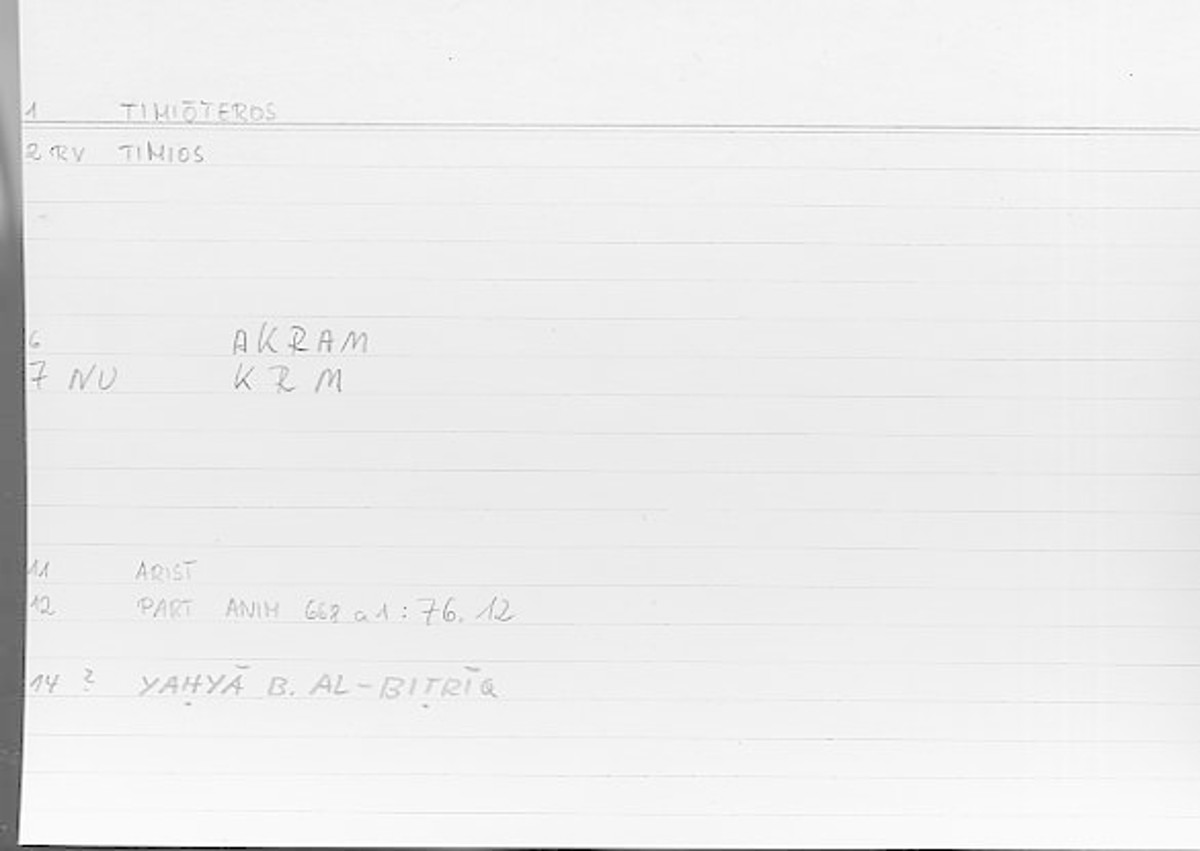 1 TIMIŌTEROS
2 RV TIMIOS
6 AKRAM
7 NU KRM
11 ARIST
12 PART ANIM 668 a 1 : 76. 12
14 ? YAḤYĀ B. AL-BIṬRĪQ